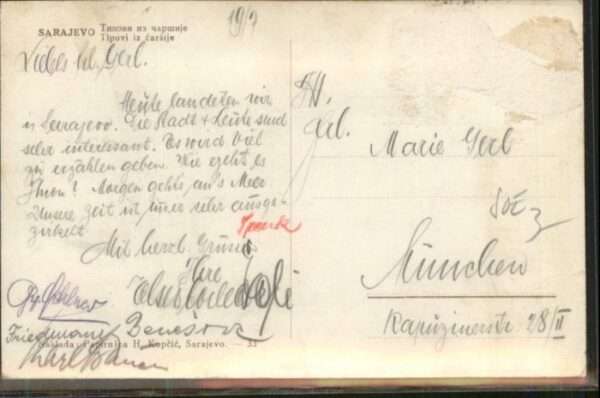 SARAJEVO Типови из чаршије
Tipovi iz čaršije
Liebes Frl. Gerl.
Heute landeten wir
in Sarajevo. Die Stadt + Leute sind
sehr interessant. Es wird viel
zu erzählen geben. Wie geht es
Ihnen? Morgen gehts an's Meer
Unsere Zeit ist immer sehr ausge-
zirkelt
Mit herzl. Grüssen
Ihre
Friedmann Benešova
Karl
Naklada: Papirnica H. Kopčić, Sarajevo. — 33
Frl.
Marie Gerl
München
Kapuzinerstr 28/II